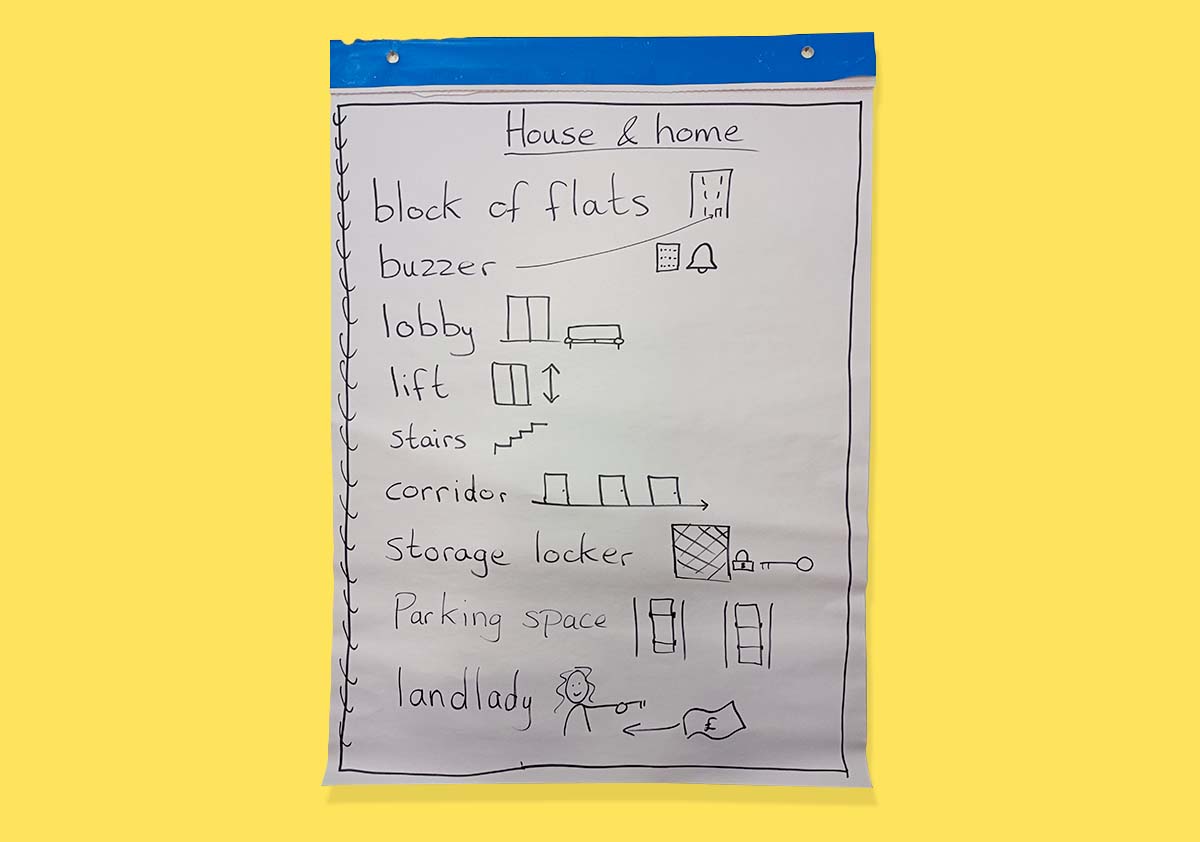 House & home
block of flats
buzzer
lobby
lift
stairs
corridor
storage locker
Parking space
landlady
£